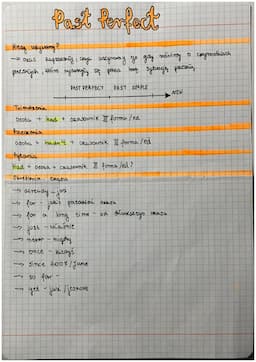 Past Perfect
Kiedy używamy?
→ czas zaprzeszły czyli używamy go gdy mówimy o czynnościach
przeszłych, które wydarzyły się przed inną sytuacją przeszłą
PAST PERFECT PAST SIMPLE
NOW
Twierdzenia
osoba + had + czasownik III forma/ed
Przeczenia
osoba + hadn't + czasownik III forma/ed
Pytania
Had + osoba + czasownik III forma/ed?
Określenia czasu
→ already - już
→ for - jakiś
→ for a long time - od dłuższego czasu
→ just - właśnie
→ never - nigdy
→ once - kiedyś
→ since 2008/June
→ so far -
→ yet - już/jeszcze